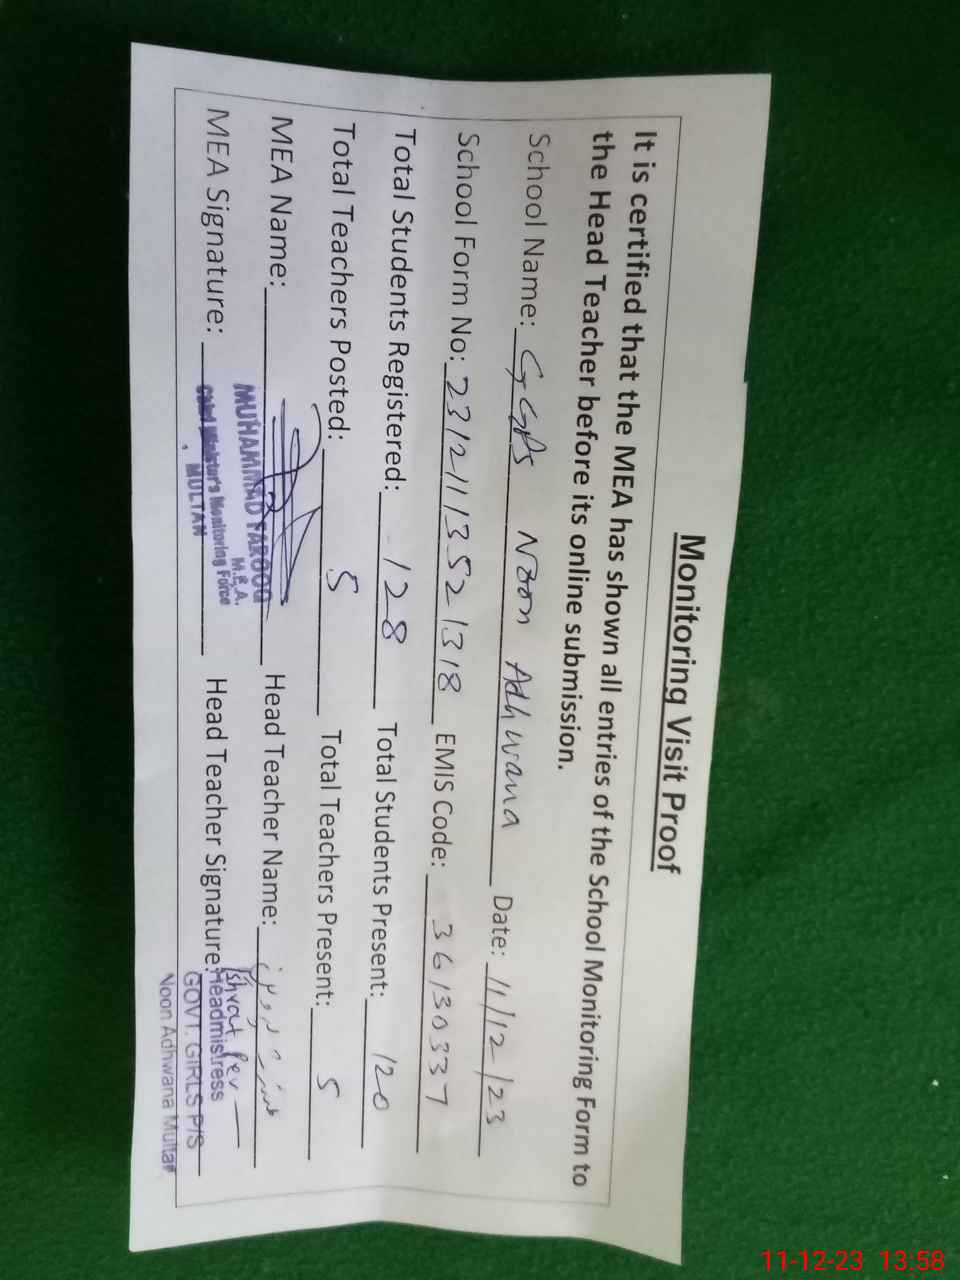 Monitoring Visit Proof
It is certified that the MEA has shown all entries of the School Monitoring Form to
the Head Teacher before its online submission.
School Name: GGPS Noon Adhwana Date: 11/12/23
School Form No: 23121113521318 EMIS Code: 36130337
Total Students Registered: 128 Total Students Present: 120
Total Teachers Posted: 5 Total Teachers Present: 5
MEA Name: Head Teacher Name: عشرت پروین
MUHAMMAD FAROOQ
M.E.A.
MEA Signature: Head Teacher Signature:
Chief Minister's Monitoring Force
MULTAN
Ishrat Per
Headmistress
GOVT. GIRLS P/S
Noon Adhwana Multan
11-12-23 13:58